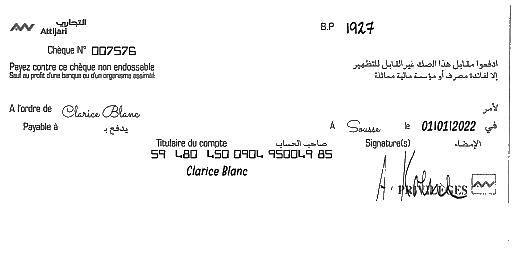 التجاري
Attijari
B.P 1927
Chèque N° 007576
Payez contre ce chèque non endossable
Sauf au profit d'une banque ou d'un organisme assimilé
ادفعوا مقابل هذا الصك غير القابل للتظهير
إلا لفائدة مصرف أو مؤسسة مالية مماثلة
A l'ordre de Clarice Blanc لأمر
Payable à يدفع بـ
A Sousse le 01/01/2022 في
Titulaire du compte صاحب الحساب
Signature(s) الإمضاء
59 480 450 0904 950049 85
Clarice Blanc
PRIVILÈGES